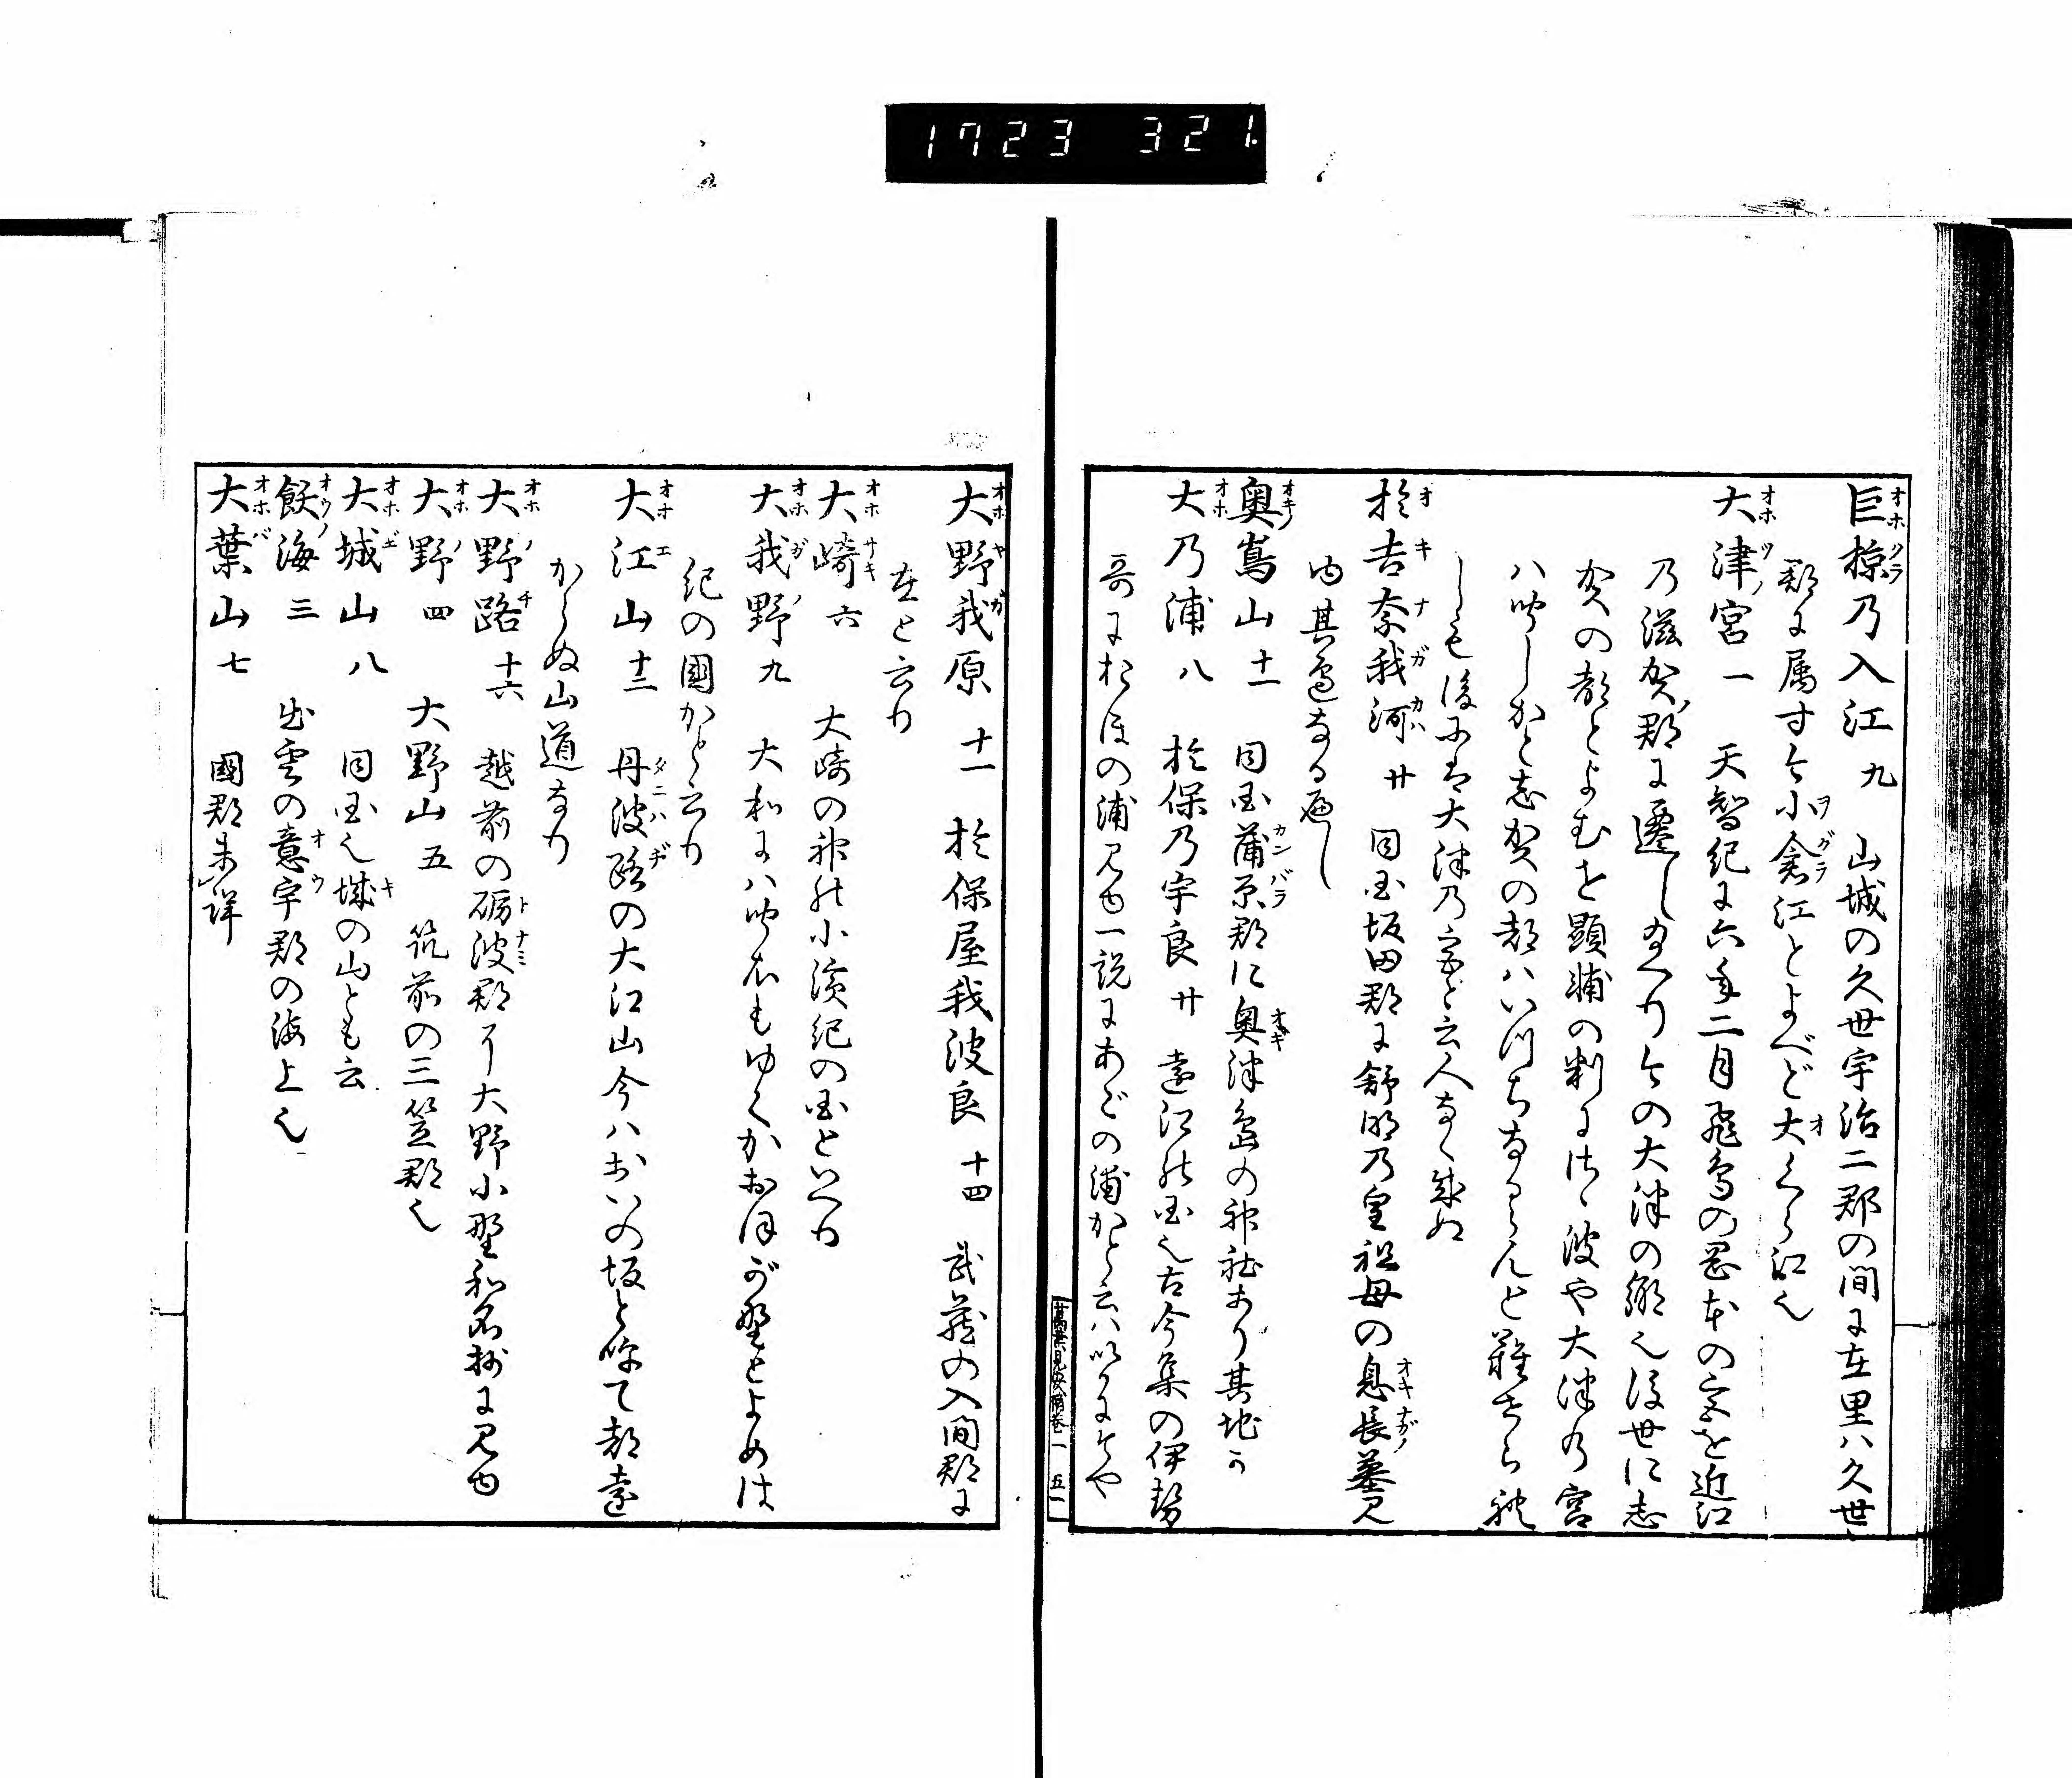 1723 321.
巨椋乃入江 九 山城の久世宇治二郡の間に在里ハ久世
郡に属す今小倉江とよべど大くら江也
大津宮 一 天智紀に六年二月飛鳥の岡本の宮を近江
乃滋賀郡に遷し給へり今の大津の郷也後世に志
賀の都とよむを顕輔の判にさゝ波や大津乃宮
ハ聞しかと志賀の都ハいつちならんと難せられ
しも後には大津乃宮と云人なく成ぬ
於吉奈我河 廿 同国坂田郡に舒明乃皇祖母の息長墓見
ゆ其邊なる遍し
奥嶌山 十一 同国蒲原郡に奥津嶋の神社あり其地か
大乃浦 八 於保乃宇良 廿 遠江の国也古今集の伊勢
哥におほの浦見ゆ一説にあどの浦かと云ハ
萬葉見安補巻一 五一
大野我原 十一 於保屋我波良 十四 武蔵の入間郡に
在と云り
大崎 六 大崎の神の小濱紀の国といへり
大我野 九 大和にハ聞えもゆくかおほが野とよめは
紀の國かと云り
大江山 十二 丹波路の大江山今ハおいの坂と呼て都遠
からぬ山道なり
大野路 十六 越前の礪波郡に大野小野和名抄に見ゆ
大野 四 大野山 五 筑前の三笠郡也
大城山 八 同国也城の山とも云
飫海 三 出雲の意宇郡の海上也
大葉山 七 國郡未詳